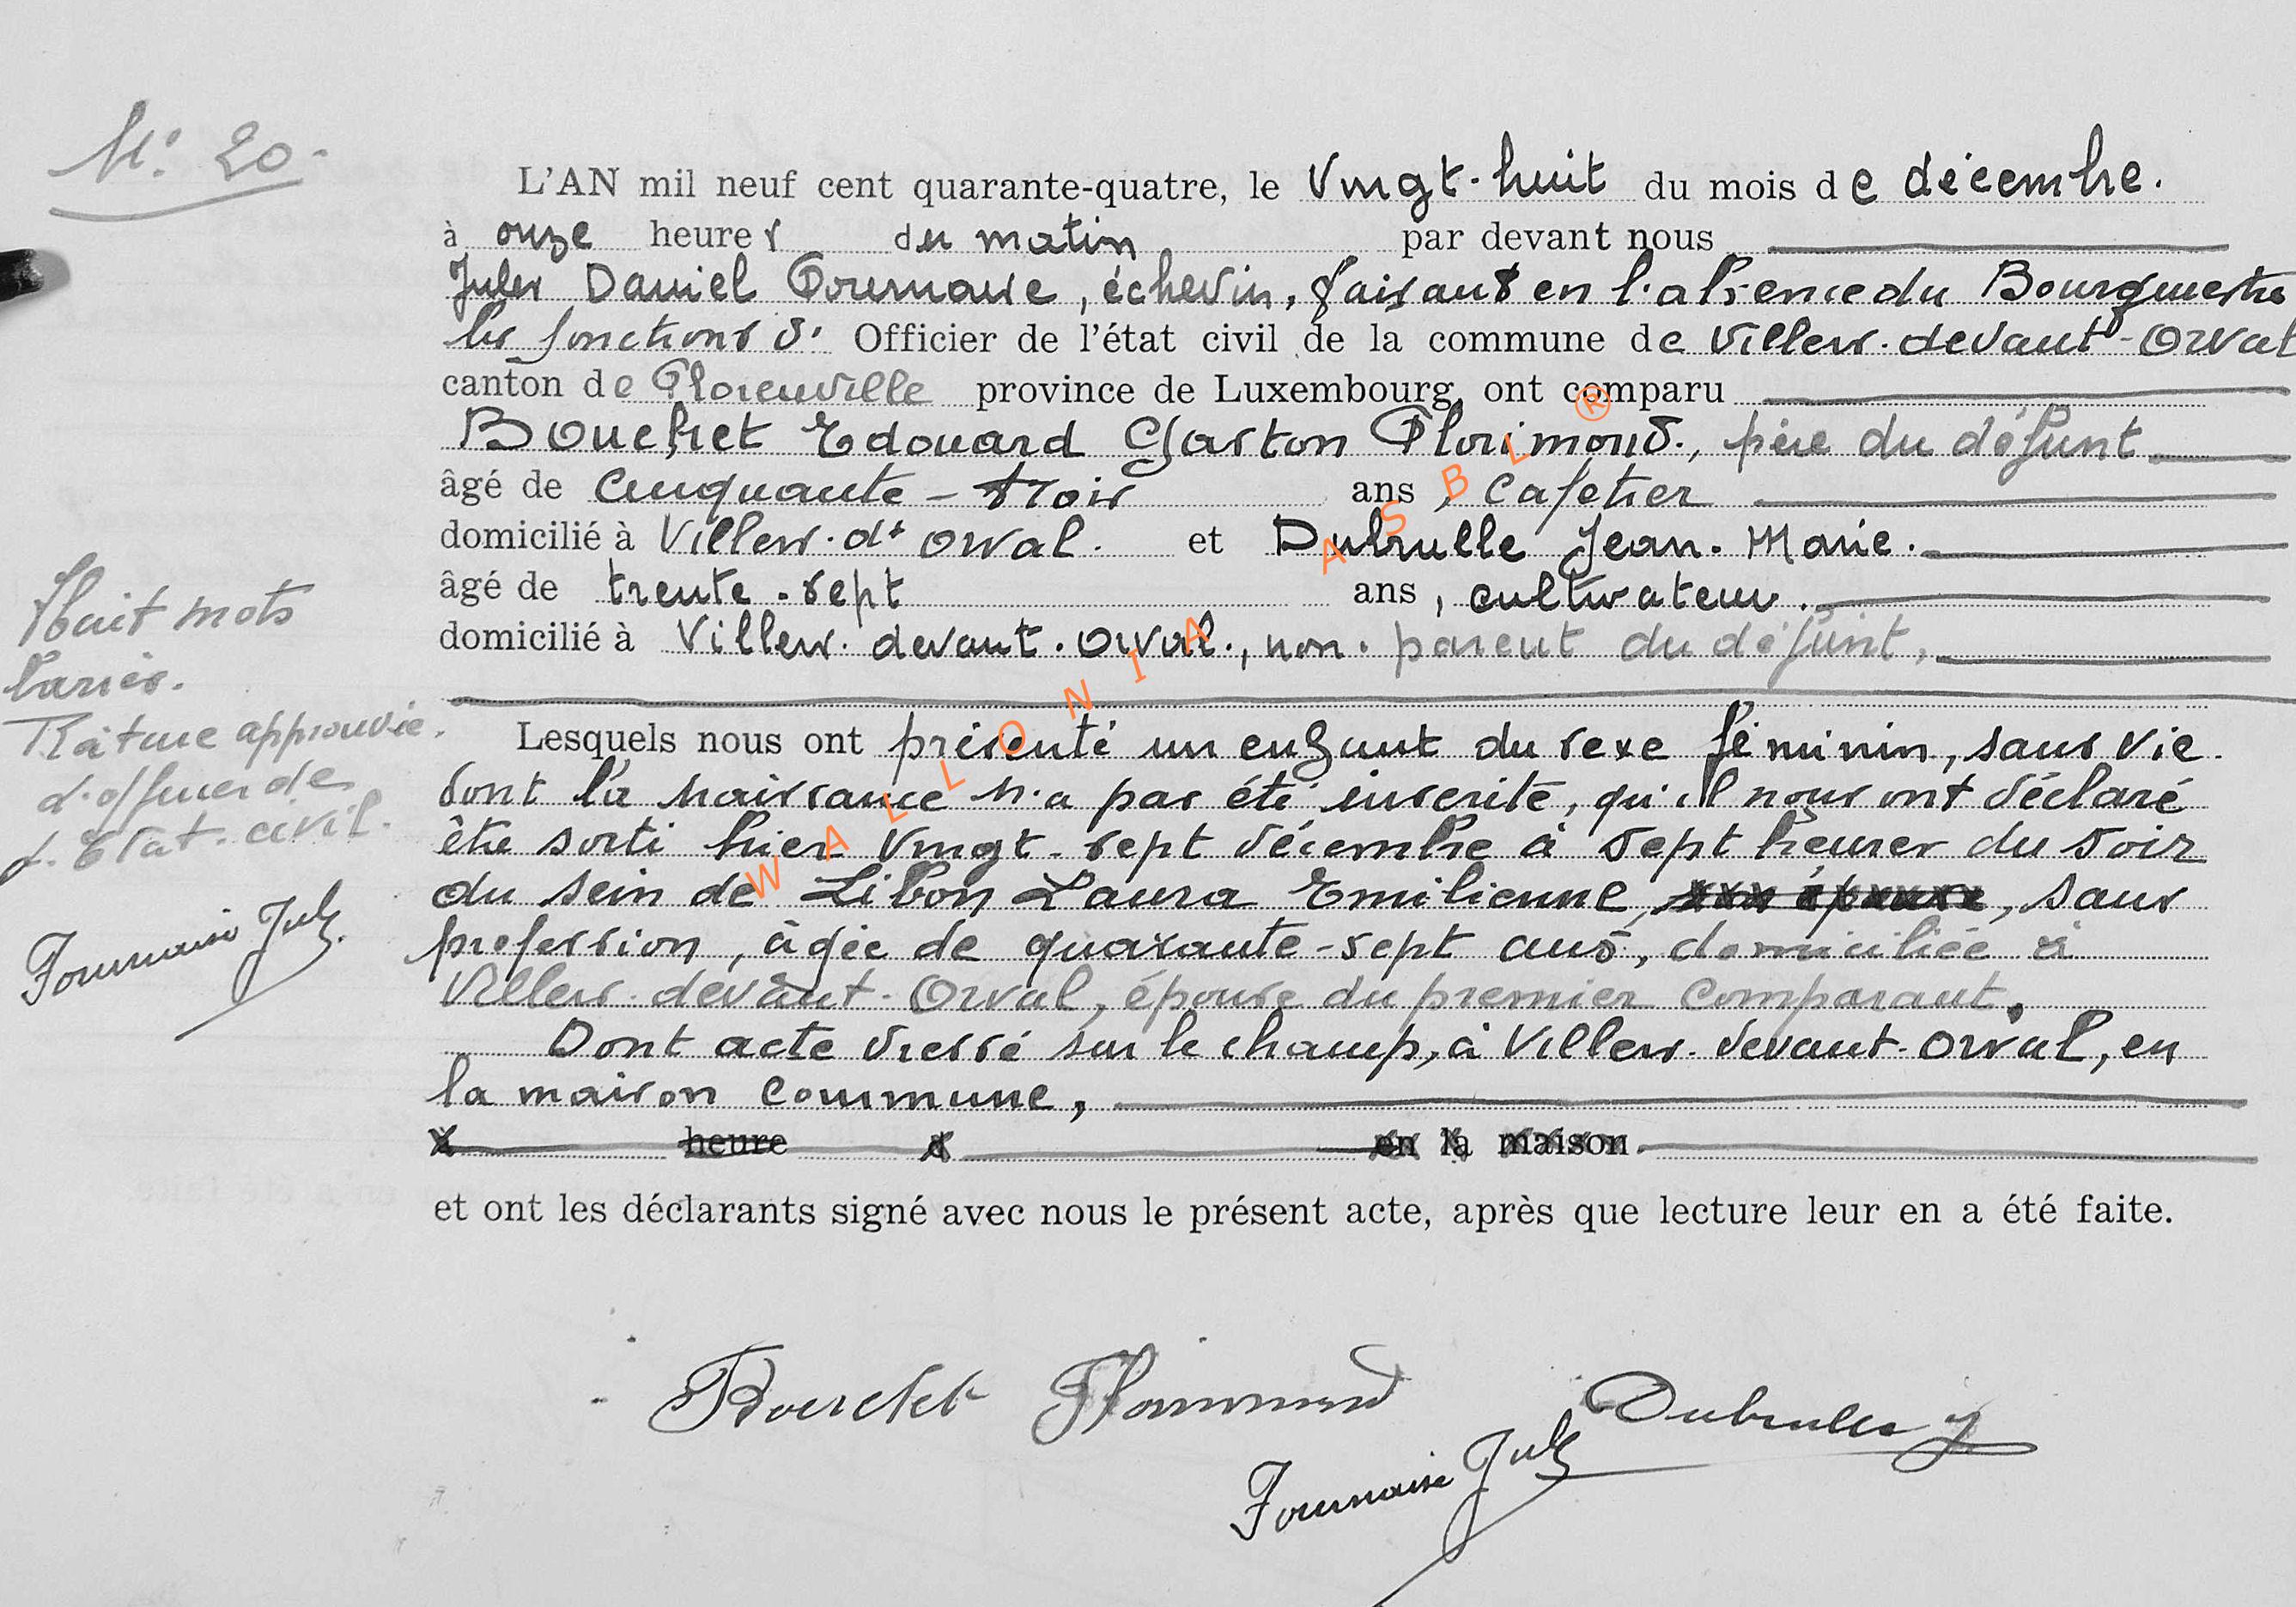 N° 20.
L'AN mil neuf cent quarante-quatre, le Vingt-huit du mois de décembre.
à onze heures du matin par devant nous
Jules Daniel Fournaise, échevin, faisant en l'absence du Bourgmestre
les fonctions d' Officier de l'état civil de la commune de Villers-devant-Orval
canton de Florenville province de Luxembourg, ont comparu
Bouchet Edouard Gaston Florimond, père du défunt
âgé de cinquante-trois ans, cafetier
domicilié à Villers-dt Orval. et Dubrulle Jean-Marie.
âgé de trente-sept ans, cultivateur.
domicilié à Villers-devant-Orval, non-parent du défunt,
Huit mots
barrés.
Râture approuvée.
L'officier de
L'Etat-civil.
Fournaise Jules
Lesquels nous ont présenté un enfant du sexe féminin, sans vie
dont la naissance n'a pas été inscrite, qu'il nous ont déclaré
être sorti hier vingt-sept décembre à sept heures du soir
du sein de Libon Laura Emilienne, épouse, sans
profession, âgée de quarante-sept ans, domiciliée à
Villers-devant-Orval, épouse du premier comparant.
Dont acte dressé sur le champ, à Villers-devant-Orval, en
la maison commune,
à heure d en la maison
et ont les déclarants signé avec nous le présent acte, après que lecture leur en a été faite.
Bouchet Florimond Dubrulle J
Fournaise Jules
WALLONIA ASBL ®